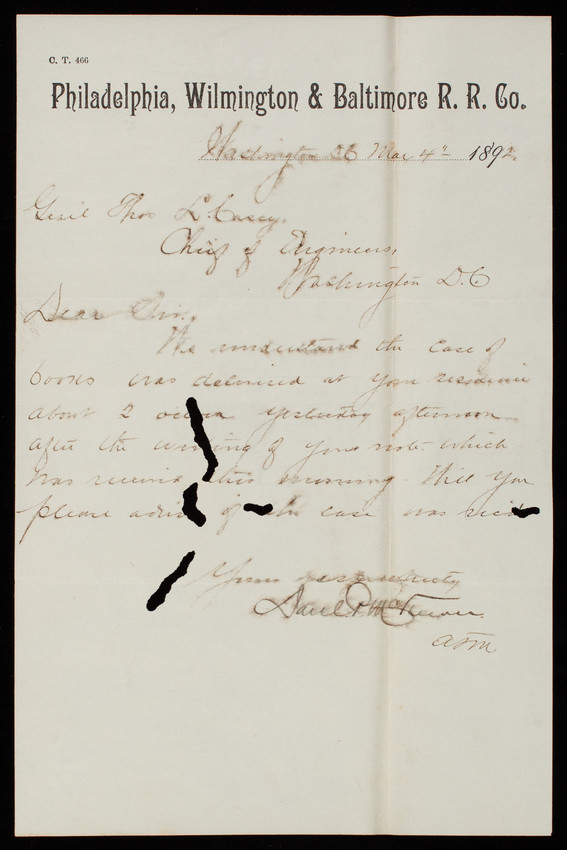 C. T. 466
Philadelphia, Wilmington & Baltimore R. R. Co.
Washington DC Mar 4th 1892
Genl Thos L. Casey.
Chief of Engineers,
Washington D.C
Dear Sir,
We understand the case of
books was delivered at your residence
about 2 yesterday afternoon
after the writing of your note which
was received this morning. Will you
please if the case was
Yours respectfully